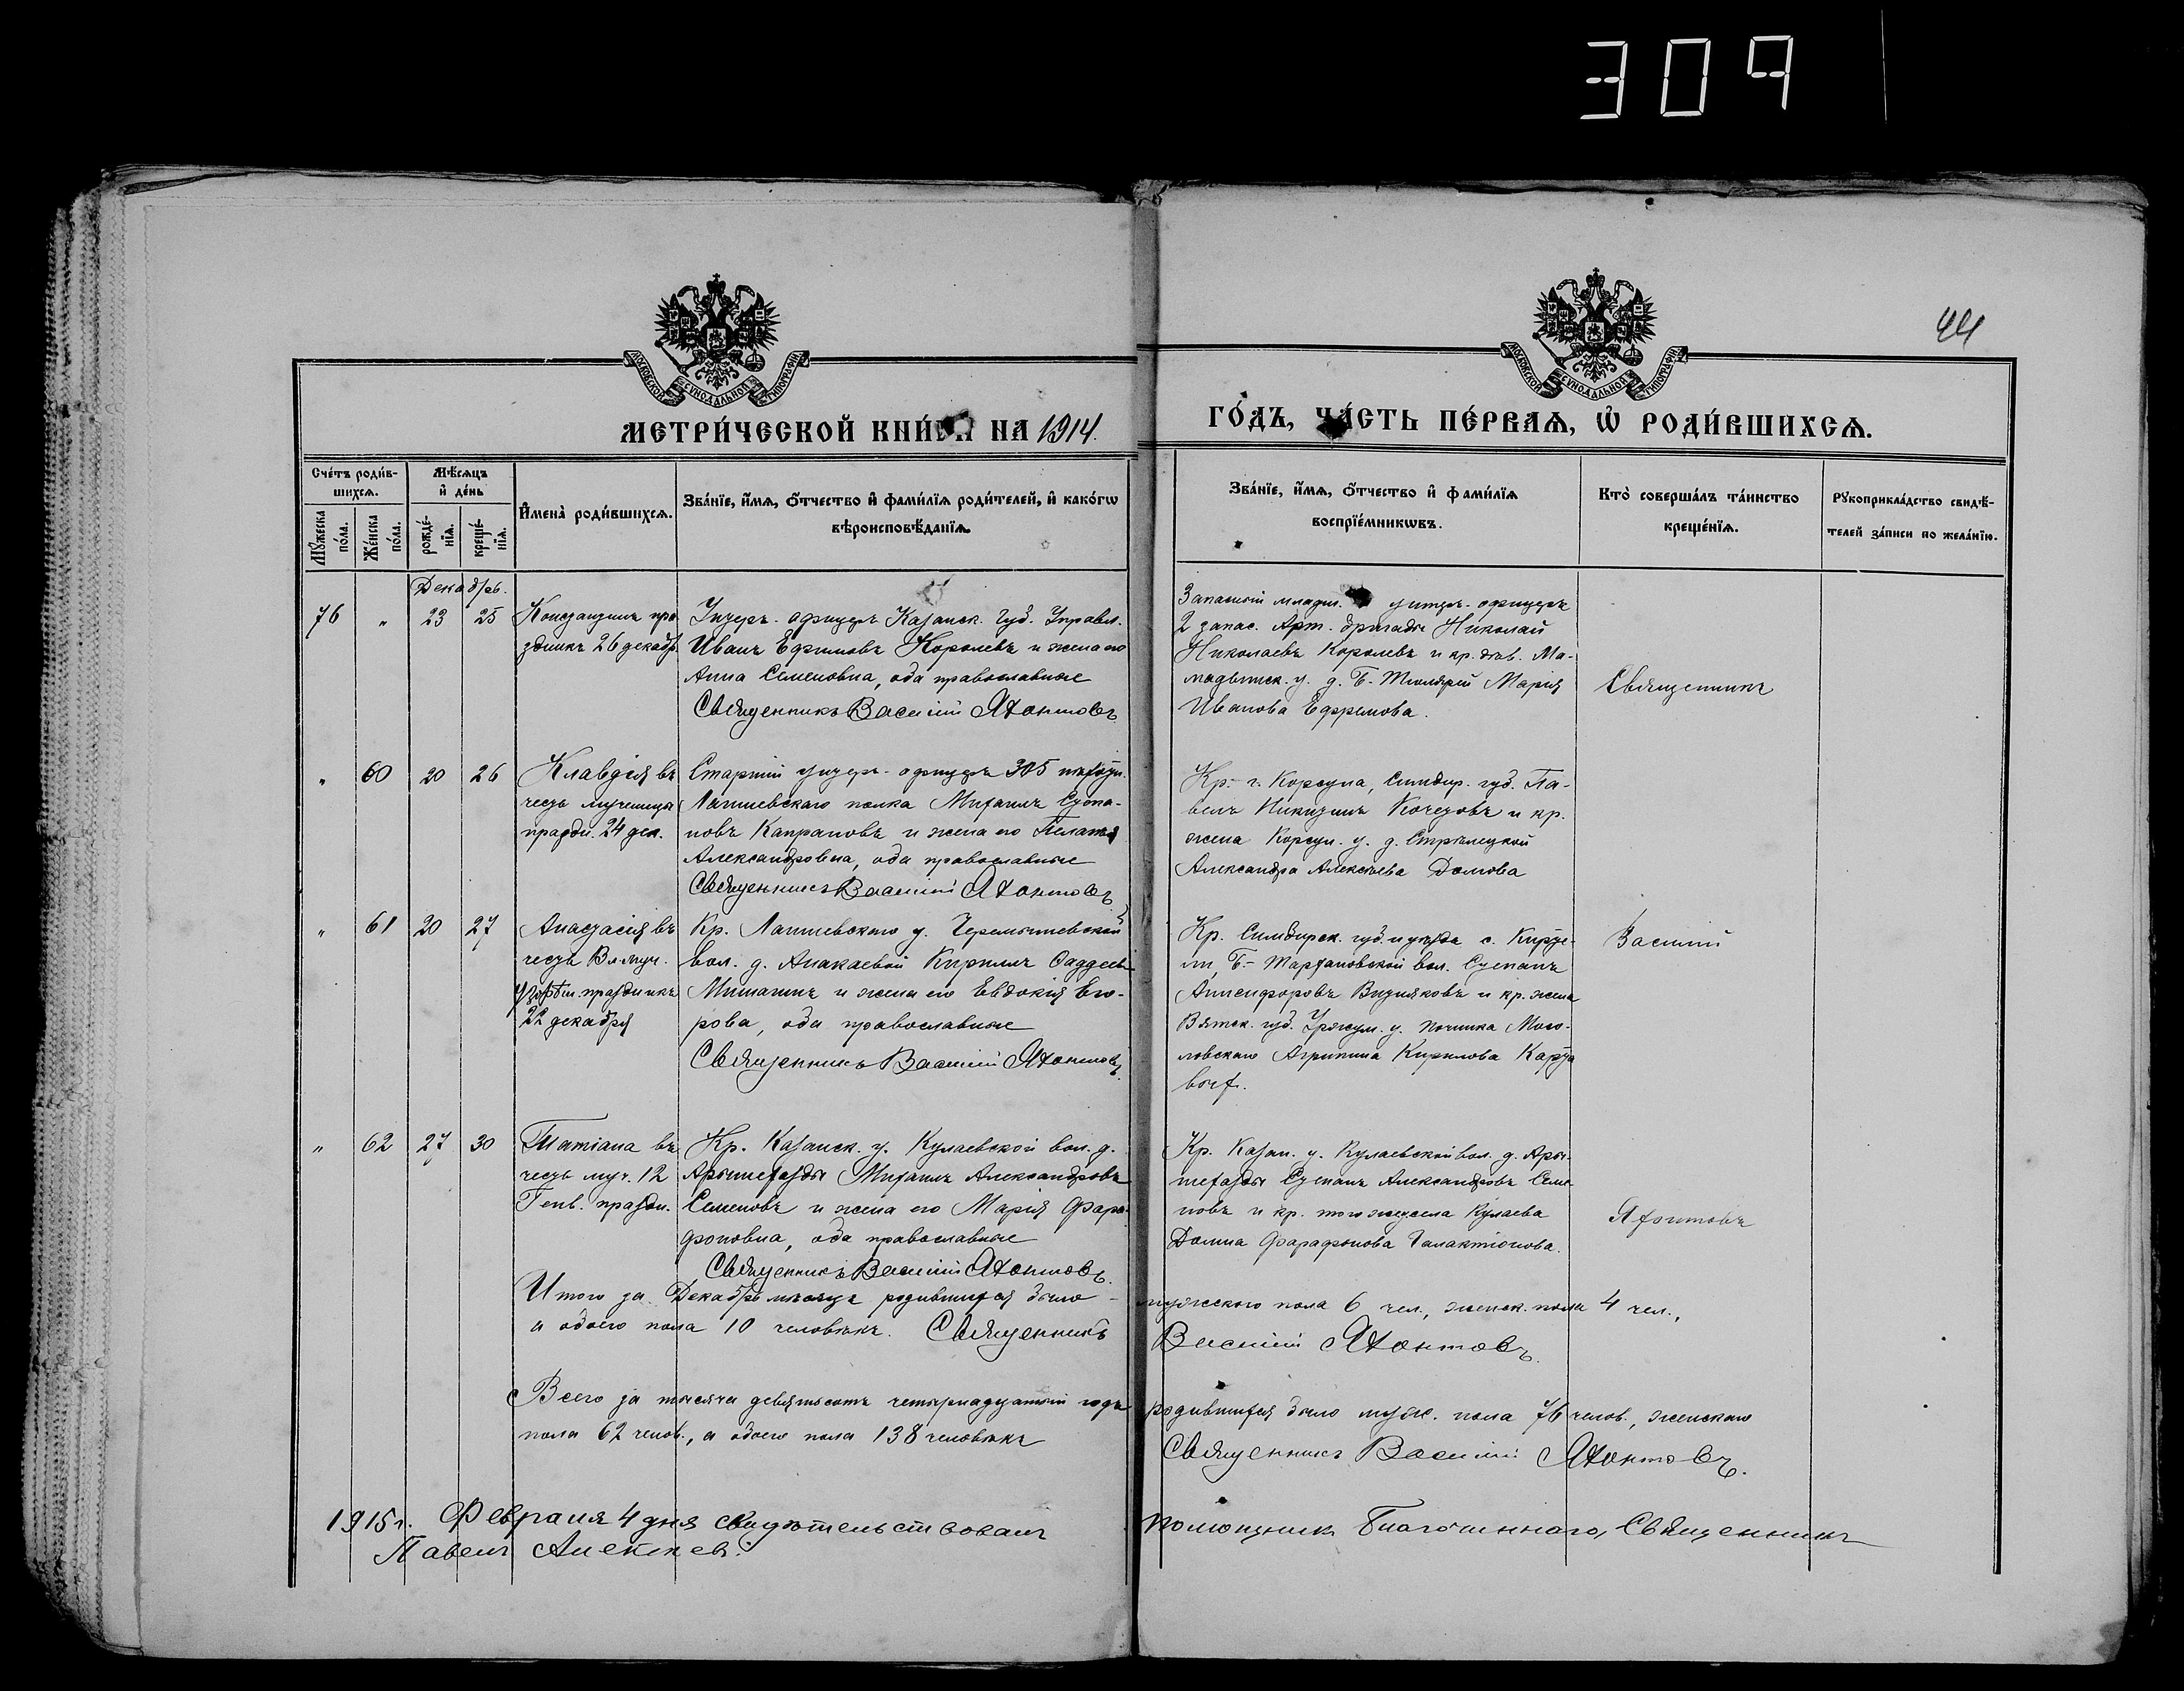 309
44
МОСКОВСКОЙ СѴНОДАЛЬНОЙ ТИПОГРАФІИ
МОСКОВСКОЙ СѴНОДАЛЬНОЙ ТИПОГРАФІИ
МЕТРИ́ЧЕСКОЙ КНИ́ГИ НА 1914.
ГО́ДЪ, ЧА́СТЬ ПЕ́РВАѦ, Ѽ РОДИ́ВШИХСѦ.
Сче́тъ роди́в-
шихсѧ.
Мꙋ́жеска по́ла.
Же́нска по́ла.
Мѣ́сѧцъ
и҆ де́нь
рожде́-
нїѧ.
креще́-
нїѧ.
И҆мена̀ роди́вшихсѧ.
Зва́нїе, и҆́мѧ, ѻ҆́тчество и҆ фами́лїѧ роди́телей, и҆ како́гѡ
вѣроисповѣ́данїѧ.
Зва́нїе, и҆́мѧ, ѻ҆́тчество и҆ фами́лїѧ
воспрїе́мникѡвъ.
Кто̀ соверша́лъ та́инство
креще́нїѧ.
Рꙋкоприкла́дство свидѣ́-
телей за́писи по жела́нїю.
Декабрь.
76 " 23 25
Констандинъ пра-
здникъ 26 декабр.
Унтеръ-офицеръ Казанск. Губ. Управл.
Иванъ Ефимовъ Королевъ и жена его
Анна Семеновна, оба православные
Священникъ Василій Яхонтовъ
Запасный младш. унтеръ-офицеръ
2 запас. Арт. бригады Николай
Николаевъ Королевъ и кр. дѣв. Ма-
мадышск. у. д. Б. Марія
Иванова Ефремова.
Священникъ
" 60 20 26
Клавдія въ
честь мученицы
праздн. 24 дек.
Старшій унтеръ-офицеръ 305 пѣхотн.
Лаишевскаго полка Михаилъ Степа-
новъ Капрановъ и жена его Пелагія
Александровна, оба православные
Священникъ Василій Яхонтовъ
Кр. г. Корсуна, Симбир. губ. Па-
велъ Никитинъ Кочетовъ и кр.
жена Корсун. у. д. Стрѣлецкой
Александра Алексѣева Домова
" 61 20 27
Анастасія въ
честь Вл.-муч.
Узорѣш. праздникъ
22 декабря
Кр. Лаишевскаго у. Черемышевской
вол. д. Анакаевой Кириллъ Фаддеевъ
Мишанинъ и жена его Евдокія Его-
рова, оба православные
Священникъ Василій Яхонтовъ
Кр. Симбирск. губ. и уѣзда с.
Б. вол. Степанъ
Анисифоровъ Визняковъ и кр. жена
Вятск. губ. Уржум. у. починка Мого-
ловскаго Агрипина Кирилова
Василій
" 62 27 30
Татіана въ
честь муч. 12
Генв. праздн.
Кр. Казанск. у. Кулаевской вол. д.
Арышехазды Михаилъ Александровъ
Семеновъ и жена его Марія Фара-
фоновна, оба православные
Священникъ Василій Яхонтовъ.
Кр. Казан. у. Кулаевской вол. д. Ары-
шехазды Степанъ Александровъ Семе-
новъ и кр. того же села Кулаева
Домна Фарафонова Галактіонова.
Яхонтовъ
Итого за Декабрь мѣсяцъ родившихся было мужского пола 6 чел., женск. пола 4 чел.,
а обоего пола 10 человѣкъ. Священникъ Василій Яхонтовъ.
Всего за тысяча девятьсотъ четырнадцатый годъ родившихся было муж. пола 76 челов., женскаго
пола 62 челов., а обоего пола 138 человѣкъ Священникъ Василій Яхонтовъ.
1915 г. Февраля 4 дня свидѣтельствовалъ помощникъ Благочиннаго, Священникъ
Павелъ Алексѣевъ.